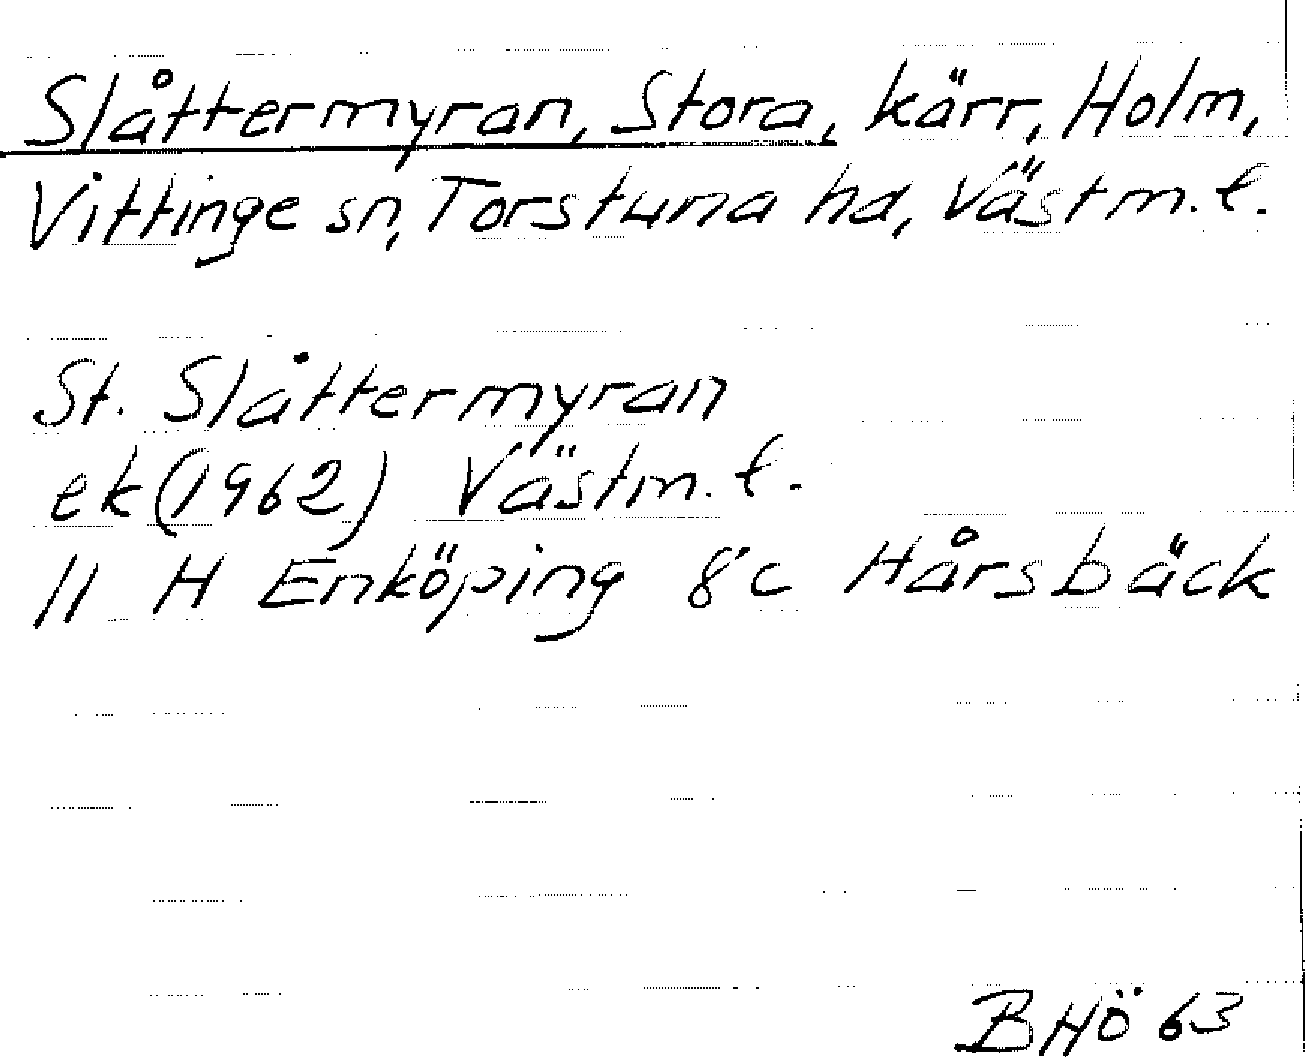 Slåttermyran, Stora, kärr, Holm,
Vittinge sn, Torstuna hd, Västm. l.
St. Slåttermyran
ek (1962) Västm. l.
11 H Enköping 8 c Hårsbäck
BHÖ 63